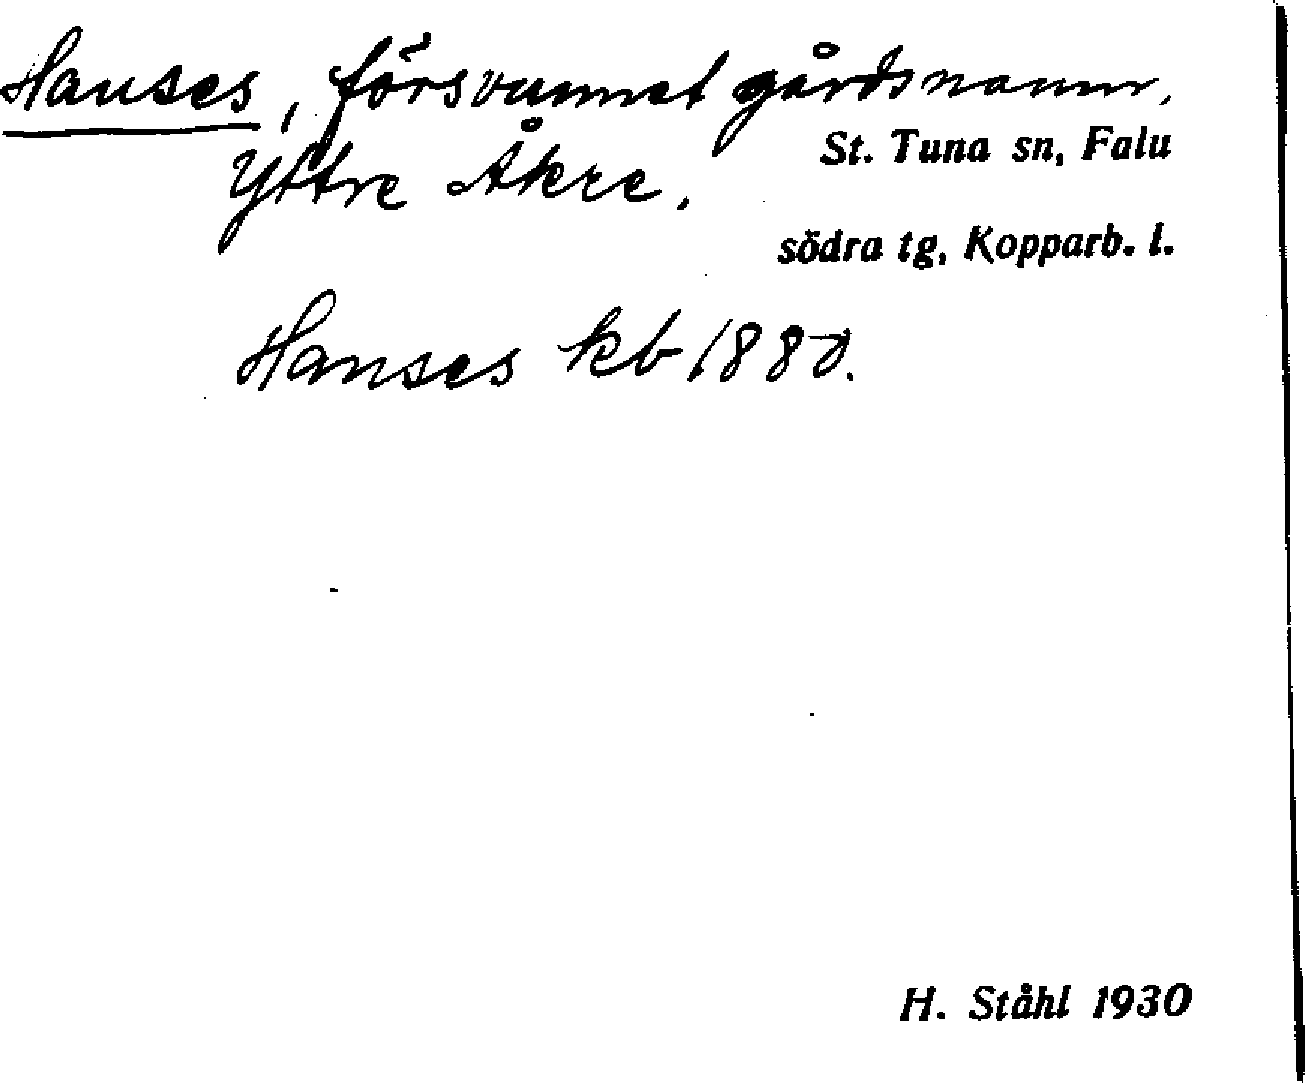 Hanses, försvunnet gårdsnamn,
Yttre Åkre.
St. Tuna sn, Falu
södra tg, Kopparb. l.
Hanses kb 1880.
H. Ståhl 1930